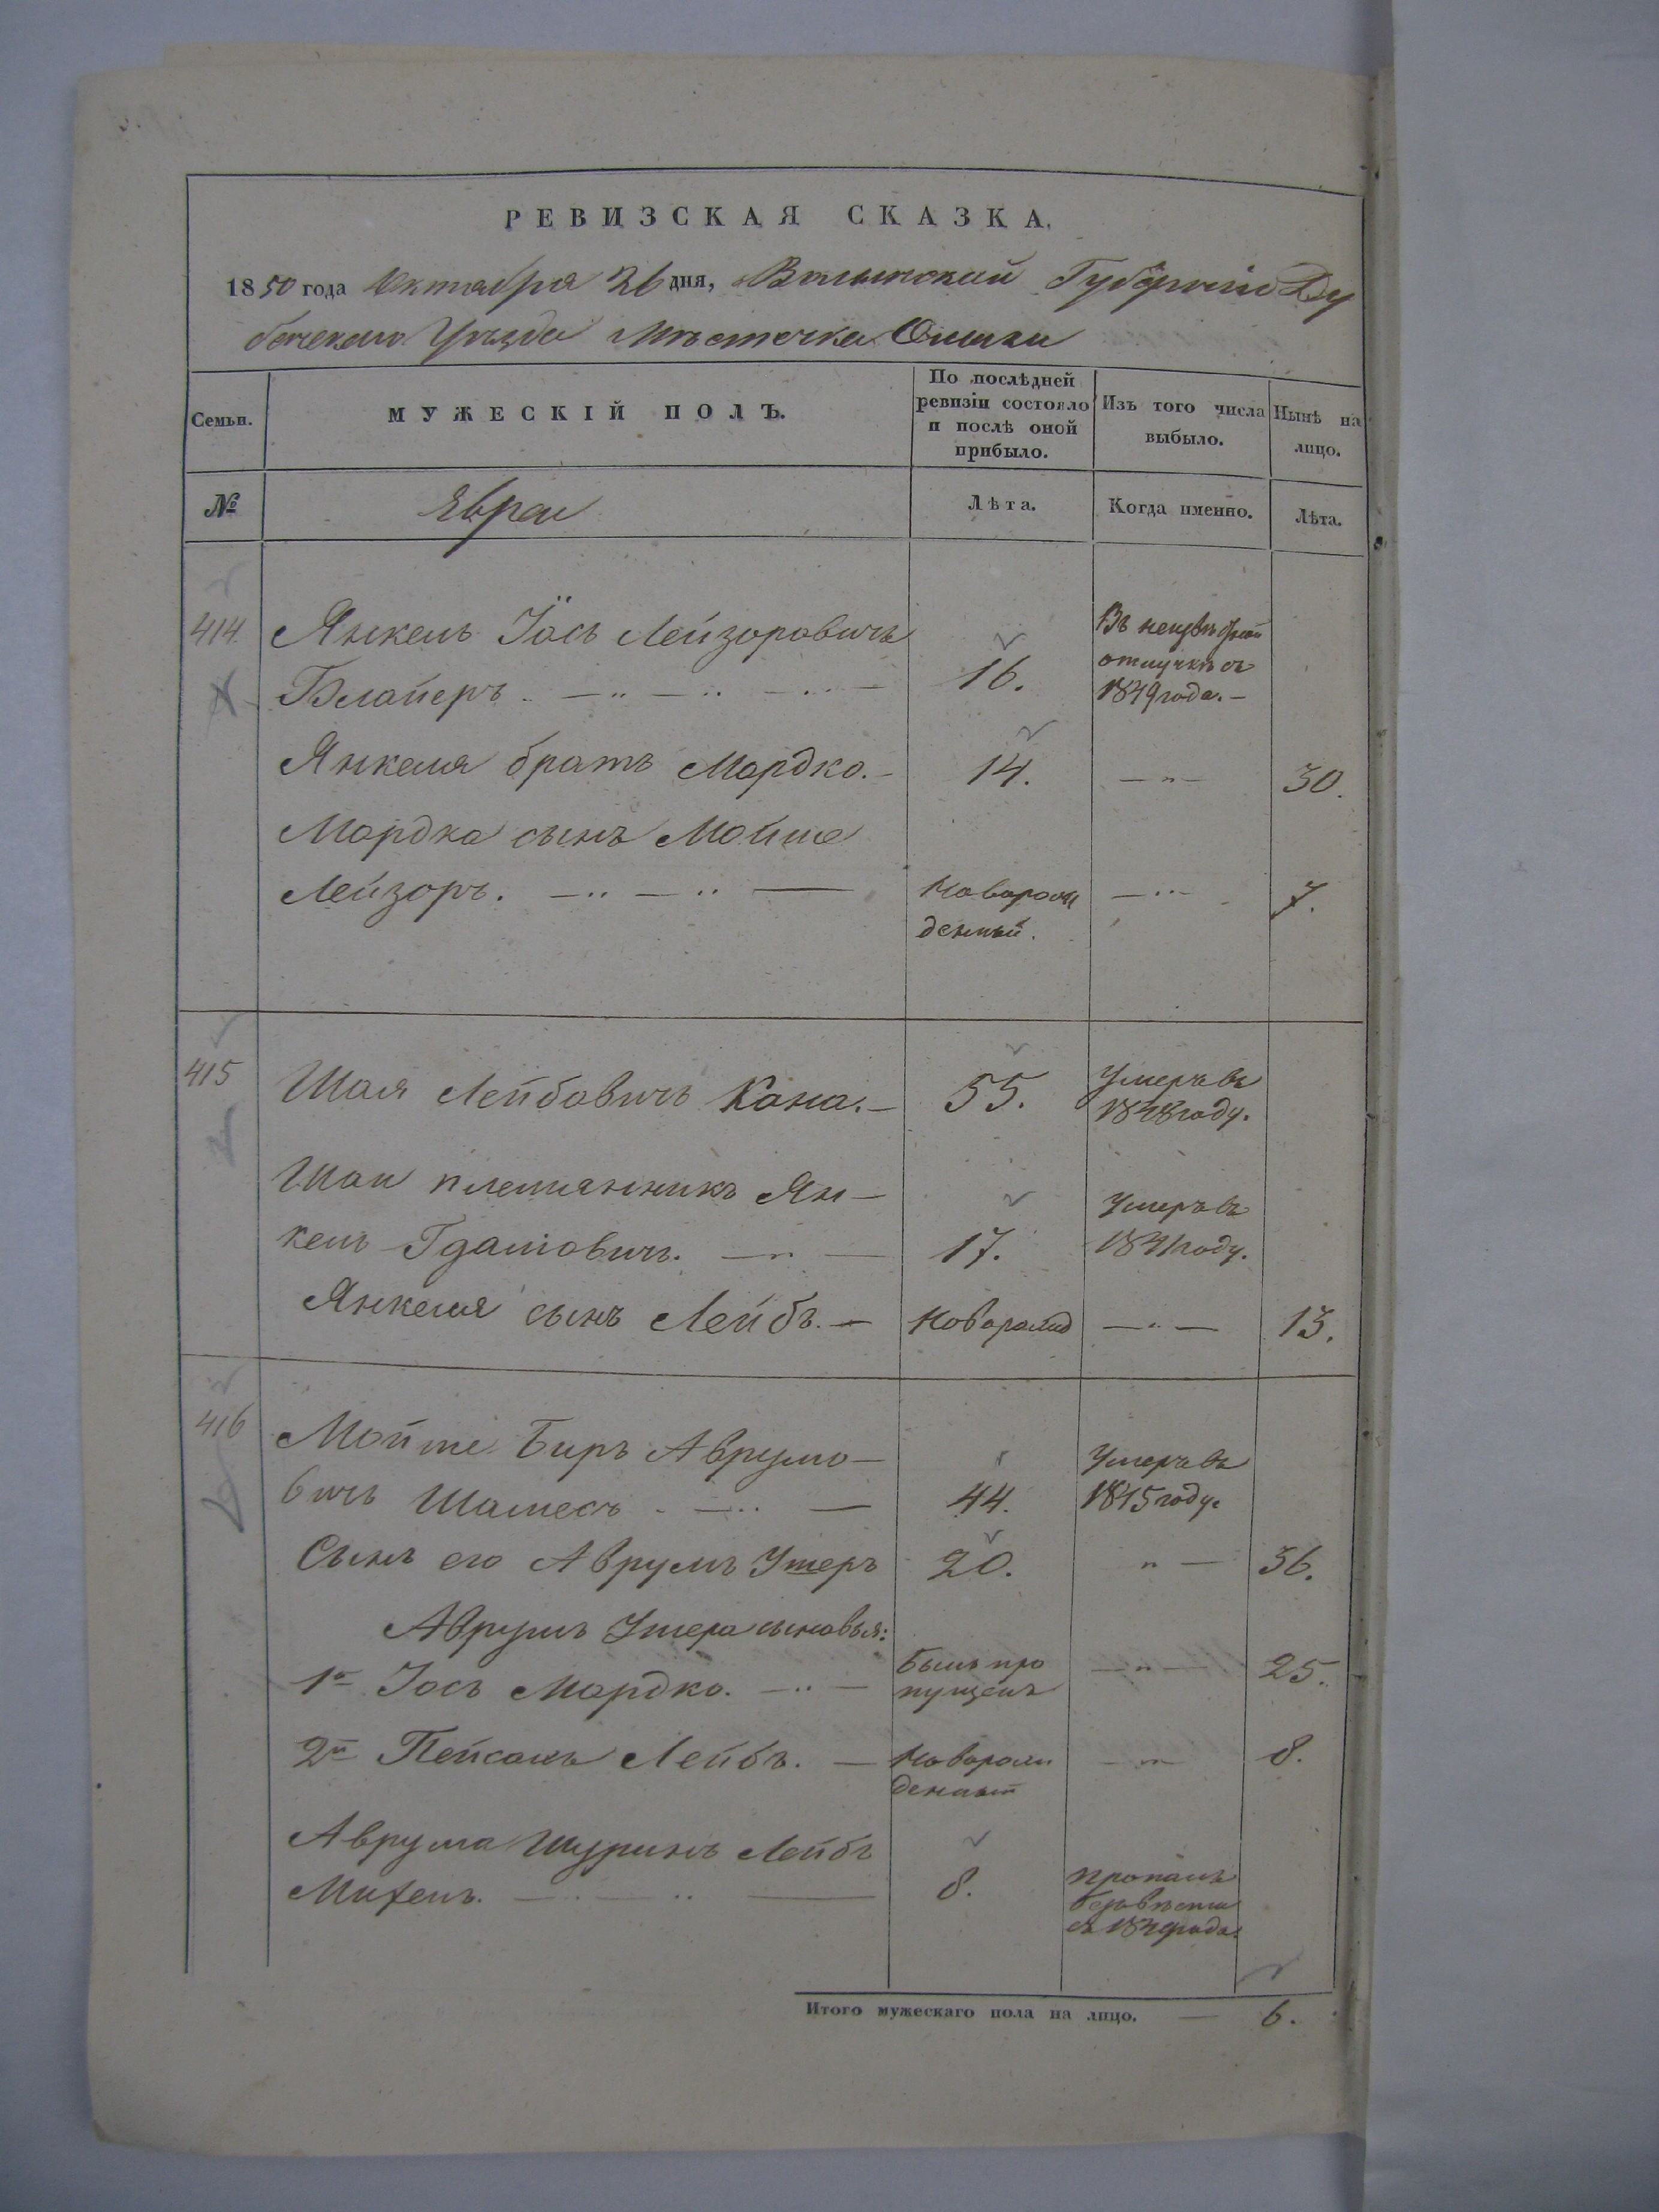 РЕВИЗСКАЯ СКАЗКА.
1850 года Октября 26 дня, Волынской Губерніи Ду
бенскаго Уѣзда Мѣстечка
Семьи.
МУЖЕСКІЙ ПОЛЪ.
По послѣдней ревизіи состояло и послѣ оной прибыло.
Изъ того числа выбыло.
Нынѣ на лицо.
№
Евреи
Лѣта.
Когда именно.
Лѣта.
414
Янкель Іось Лейзоровичъ
Блайеръ
16.
Въ неизвѣстной
отлучкѣ съ
1849 года.
Янкеля братъ Мордко.
14.
30.
Мордка сынъ Мойше
Лейзоръ.
Новорож
денный.
7.
415
Шая Лейбовичъ Кана.
55.
Умеръ въ
1848 году.
Шаи племянникъ Ян-
кель
17.
Умеръ въ
1841 году.
Янкеля сынъ Лейбъ.
Новорожд
13.
416
Мойше Беръ Аврумо-
вичъ Шамесъ
44.
Умеръ въ
1845 году.
Сынъ его Аврумъ Ушеръ
20.
36.
Аврумъ Ушера сыновья:
1й Іось Мордко.
Былъ про
пущенъ
25.
2й Пейсахъ Лейбъ.
Новорож
денный
8.
Аврума Шуринъ Лейбъ
8.
Пропалъ
безвѣсти
съ года.
Итого мужескаго пола на лицо. — 6.